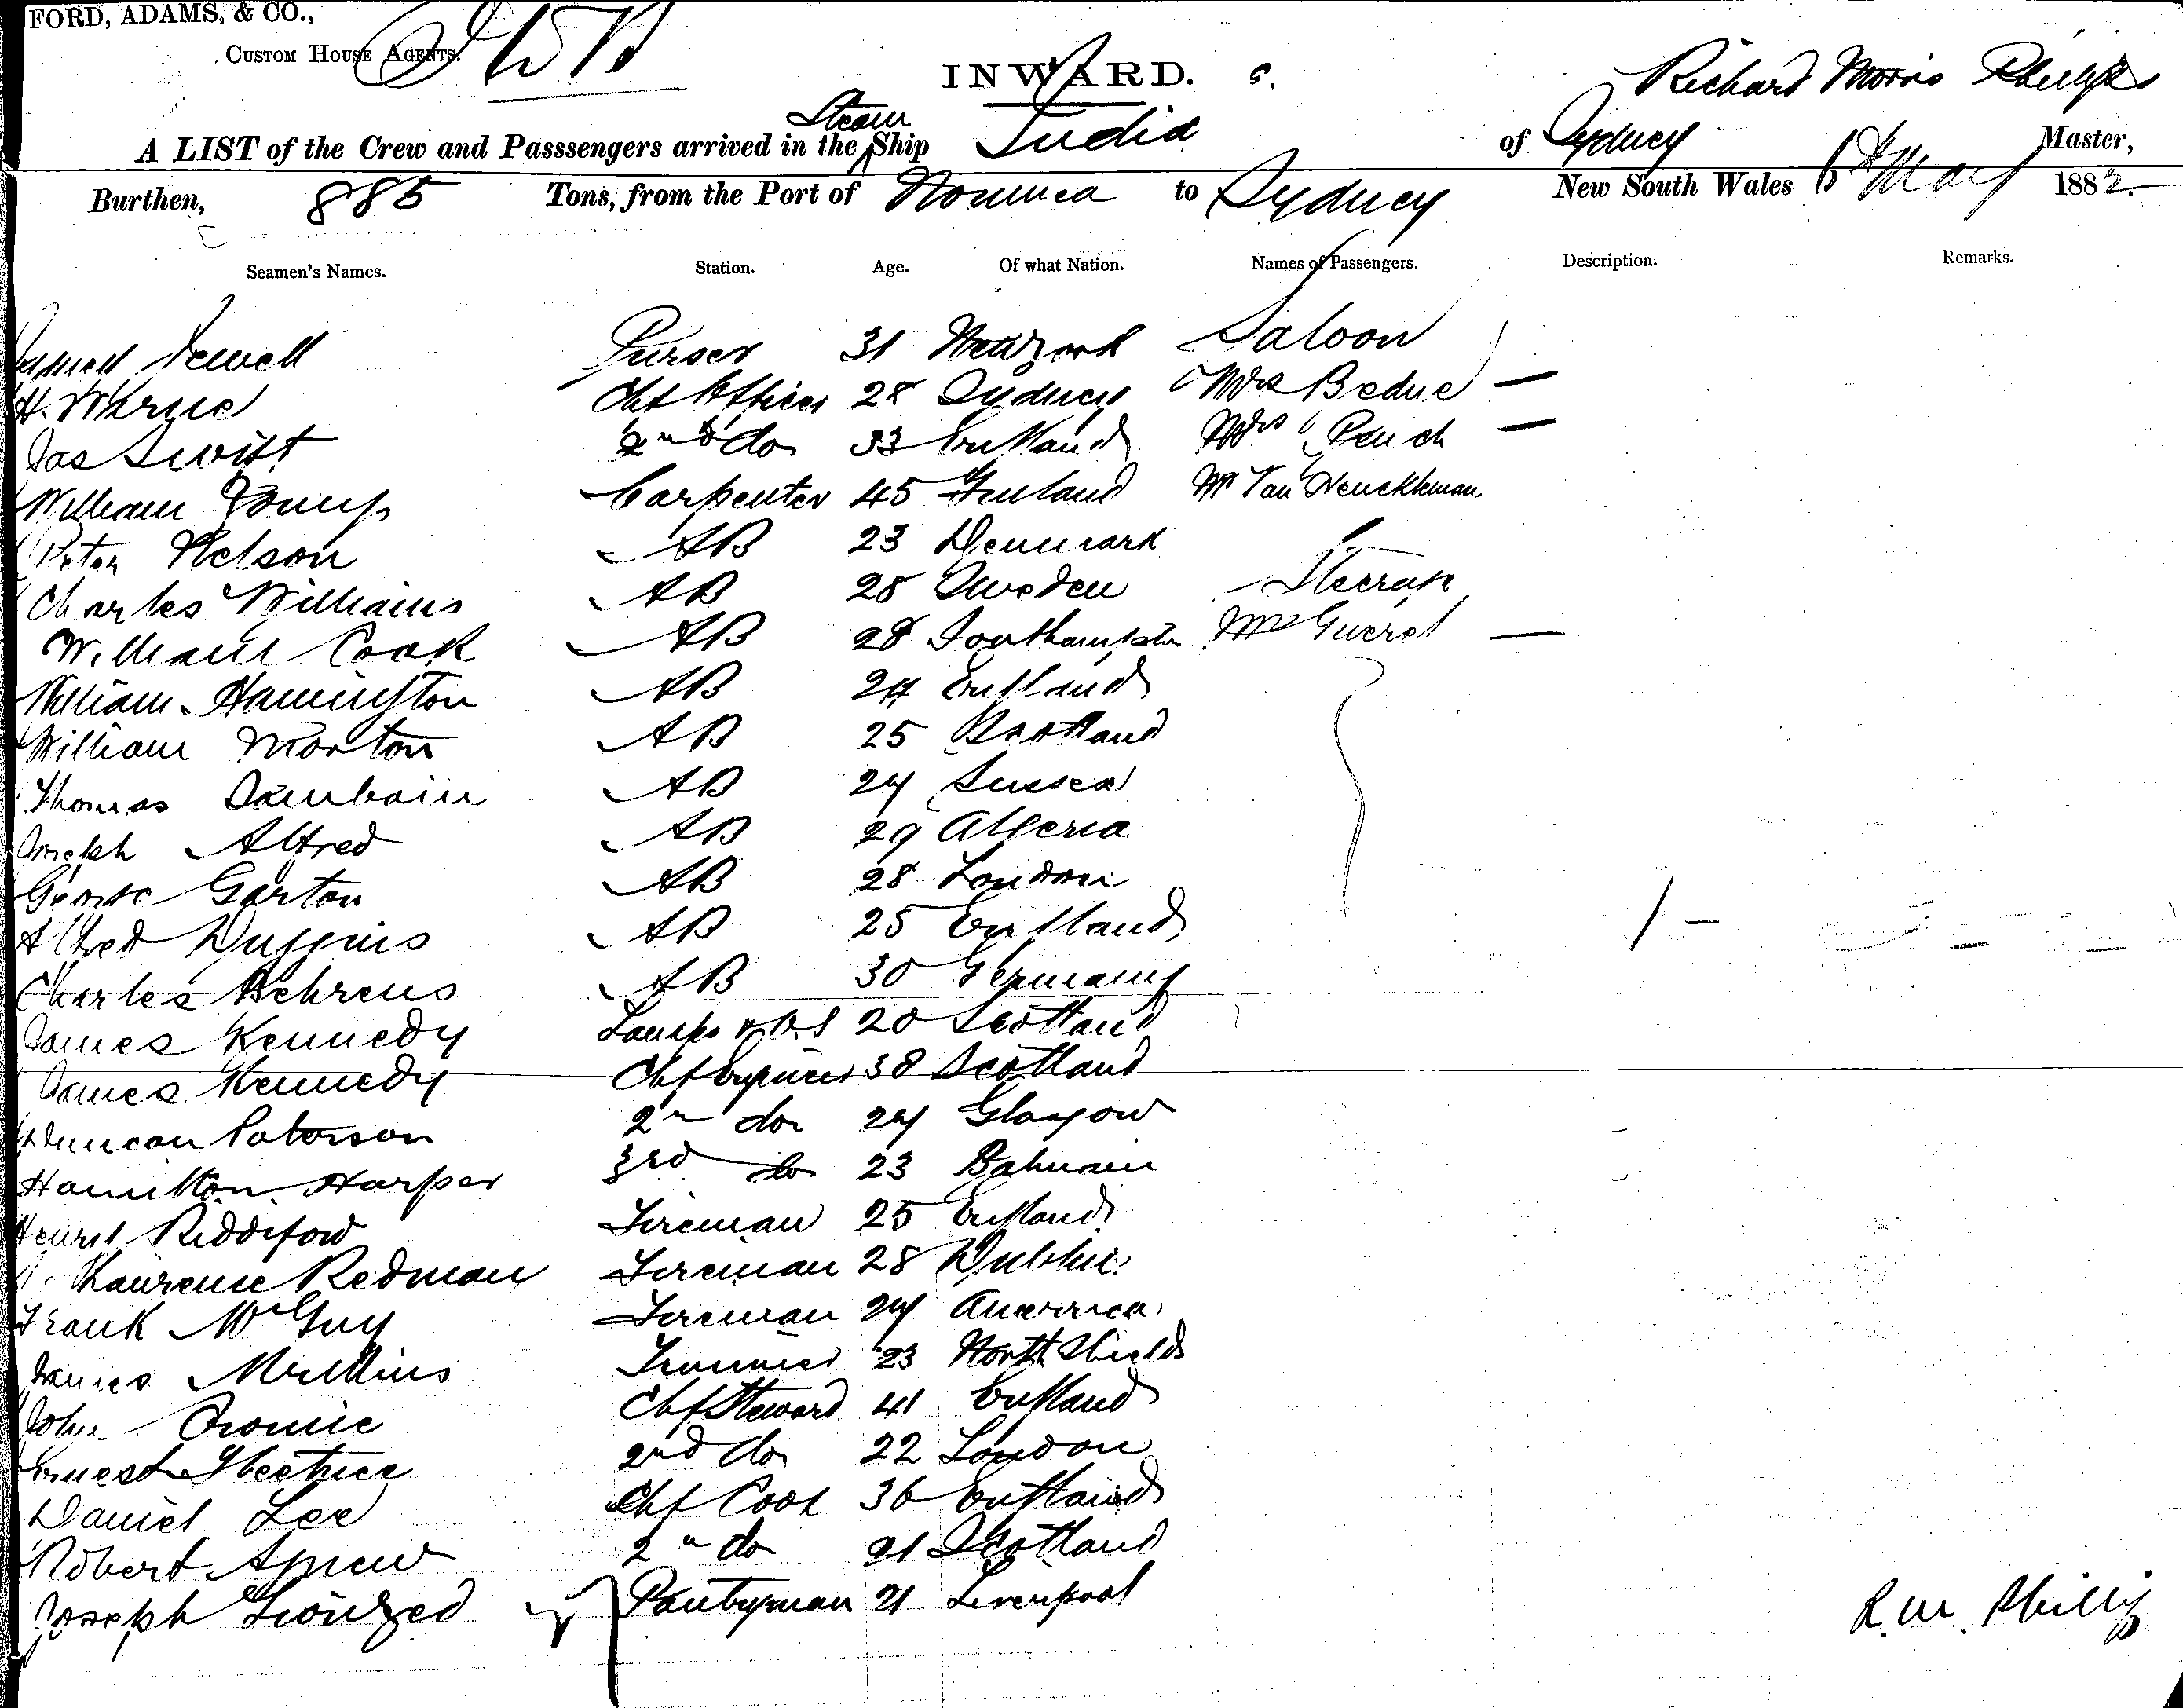 FORD, ADAMS, & CO.,
CUSTOM HOUSE AGENTS.
INWARD.
Richard Morris Phillips
A LIST of the Crew and Passsengers arrived in the Steam Ship India of Sydney Master,
Burthen, 885 Tons, from the Port of Noumea to Sydney New South Wales 6th May 1882.
Seamen's Names. Station. Age. Of what Nation. Names of Passengers. Description. Remarks.
Newell Purser 31 Saloon
H. Warne Chf Officer 28 Sydney Mrs Beduc —
Jas Swift 2nd do 33 England Mrs —
William Carpenter 45 Finland Mr Van
Peter Nelson AB 23 Denmark
Charles Williams AB 28 Sweden Steerage
William Cook AB 28 Southampton Gueret —
William Hannington AB 24 England
William Morton AB 25 Scotland
Thomas AB 24 Sussex
Joseph Alfred AB 29 Algeria
George Garton AB 28 London
Alfred Duggins AB 25 England
Charles Behrens AB 30 Germany
James Kennedy Lamps & O.S 20 Scotland
James Kennedy Chf Engineer 38 Scotland
Duncan Paterson 2n do 24 Glasgow
Hamilton Harper 3rd do 23 Balmain
Henry Riddiford Fireman 25 England
Laurence Redman Fireman 28 Dublin
Frank McGuy Fireman 24 America
James Mullins Trimmer 23 North Shields
John Cromie Chf Steward 41 England
Ernest 2nd do 22 London
Daniel Lee Chf Cook 36 England
Robert Agnew 2n do 21 Scotland
Joseph Pantryman 21 Liverpool
R. M. Phillips